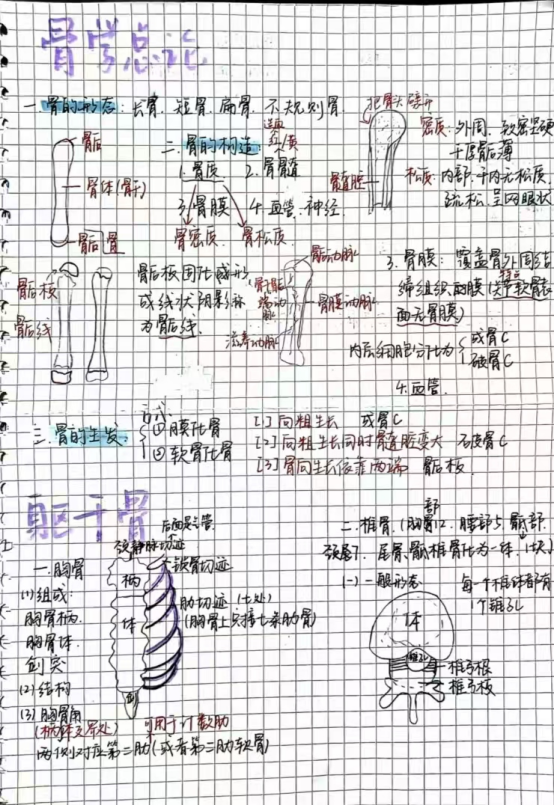 骨学总论
一.骨的形态:长骨.短骨.扁骨.不规则骨.
把骨头劈开
骨后
骨体(骨干)
骨后 骨
二.骨的构造
造血
红/黄
1.骨质 2.骨髓
3.骨膜 4.血管.神经.
骨密质. 骨松质.
骨髓腔
密质:外周.致密坚硬
干厚骨后薄
松质:内部.干内无松质,
疏松.呈网眼状
骨后板
骨后线
骨后板固化或形
成线状阴影称
为骨后线.
骨后动脉
骨膜动脉
滋养动脉
3.骨膜:覆盖骨外周结
缔组织面膜(关节软骨表
面无骨膜)
内层细胞分化为
成骨C
破骨C
4.血管.
三.骨的生发:
方式:
①膜化骨
②软骨化骨
[1]向粗生长 成骨C
[2]向粗生长同时骨髓腔变大 破骨C
[3]骨向生长依靠两端 骨后板.
躯干骨
一.胸骨
(1)组成:
胸骨柄.
胸骨体.
剑突
(2)结构
(3)胸骨角
(柄体交界处) 可用于计数肋
两侧对应第二肋(或者第二肋软骨)
后面是气管.
颈静脉切迹
锁骨切迹
柄
体
剑
肋切迹(七处)
(胸骨上只接七条肋骨)
二.椎骨.(胸骨12.腰部5.骶部.
部
颈尾7.尾骨.骶椎骨化为一体.1块)
(一)一般形态 每一个椎体都有
1个椎孔
体
椎孔
椎弓根
椎弓板